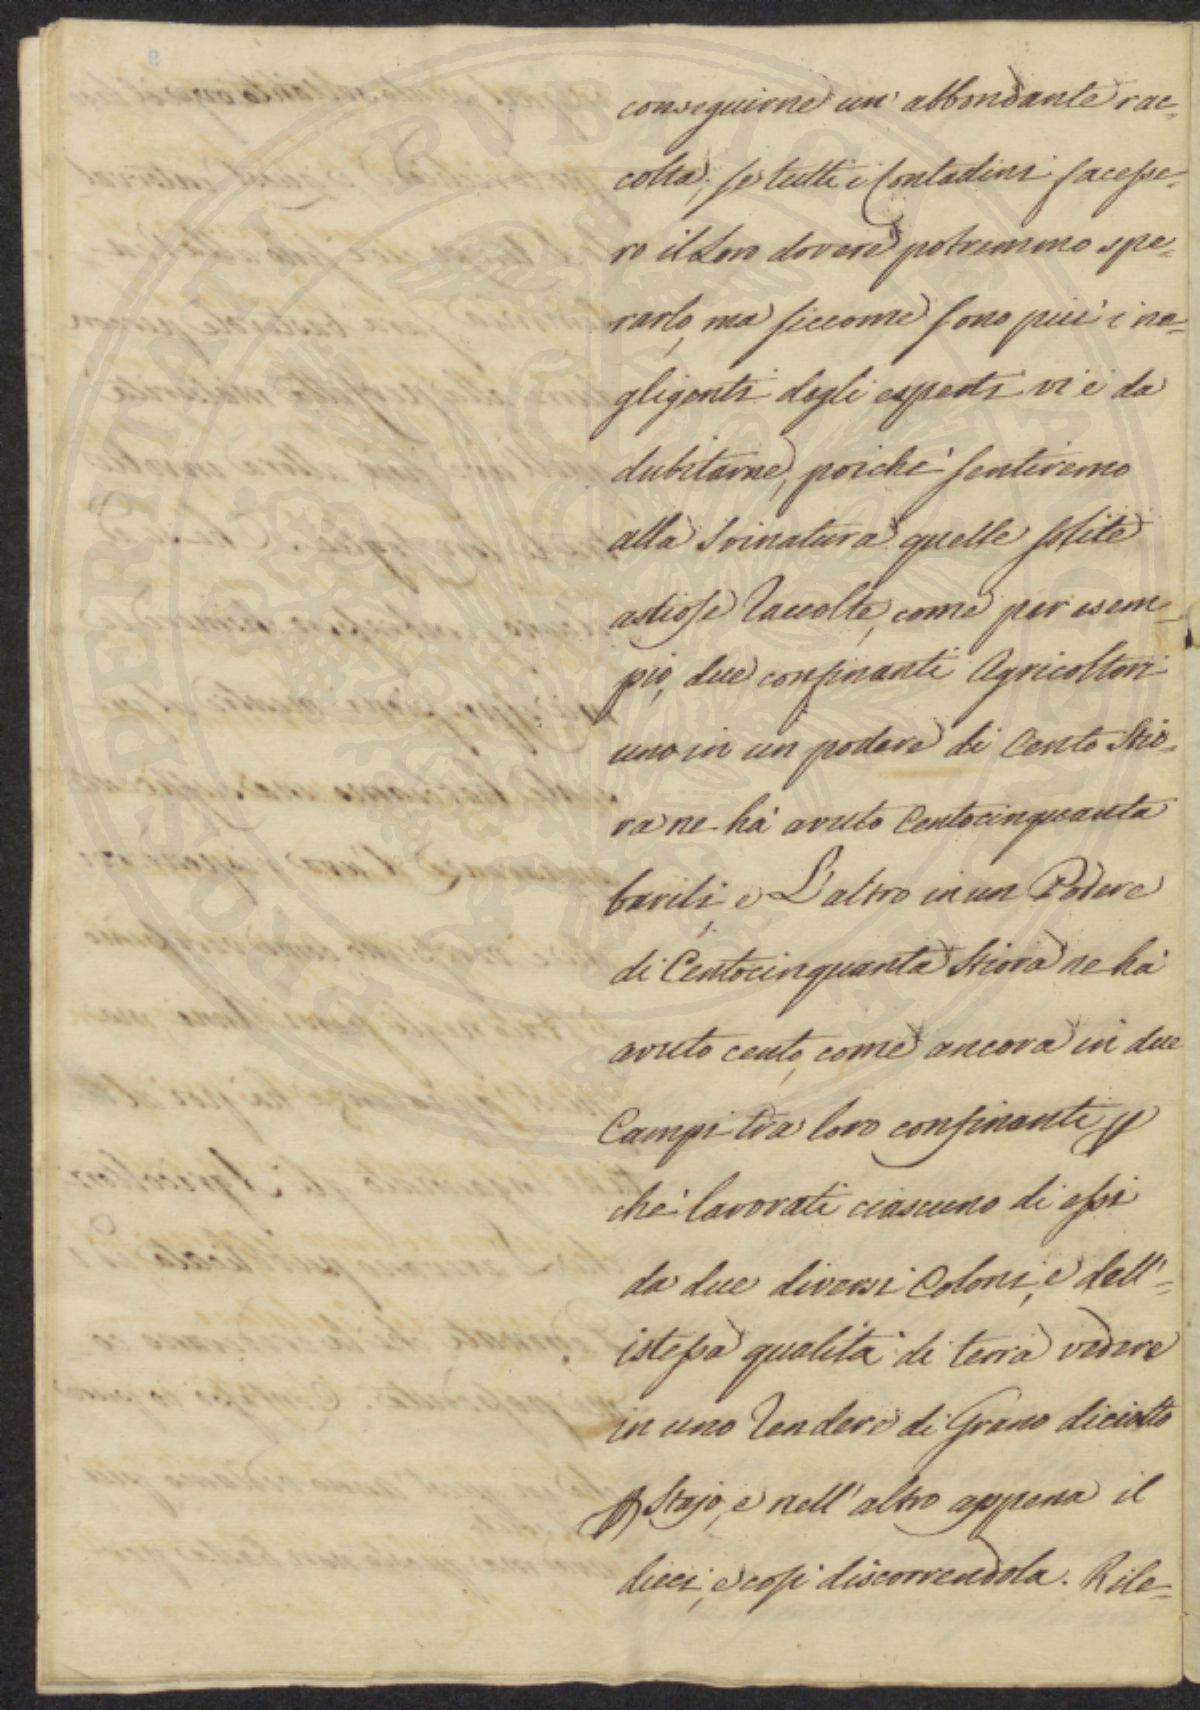 conseguirne un' abbondante rac=
colta, se tutti i Contadini facesse=
ro il Loro dovere potremmo spe=
rarlo, ma siccome sono più i ne=
gligenti degli esperti vi è da
dubitarne, poichè sentiremo
alla Svinatura quelle solite
astiose Raccolte, come per esem=
pio, due confinanti Agricoltori
uno in un podere di Cento Stio=
ra ne hà avuto Centocinquanta
barili, e L'altro in un Podere
di Centocinquanta Stiora ne hà
avuto cento, come ancora in due
Campi tra loro confinanti p
chè lavorati ciascuno di essi
da due diversi Coloni, e dell'=
istessa qualità di terra vedere
in uno Rendere di Grano diciotto
p Stajo, e nell'altro appena il
dieci, e così discorrendola. Rile=